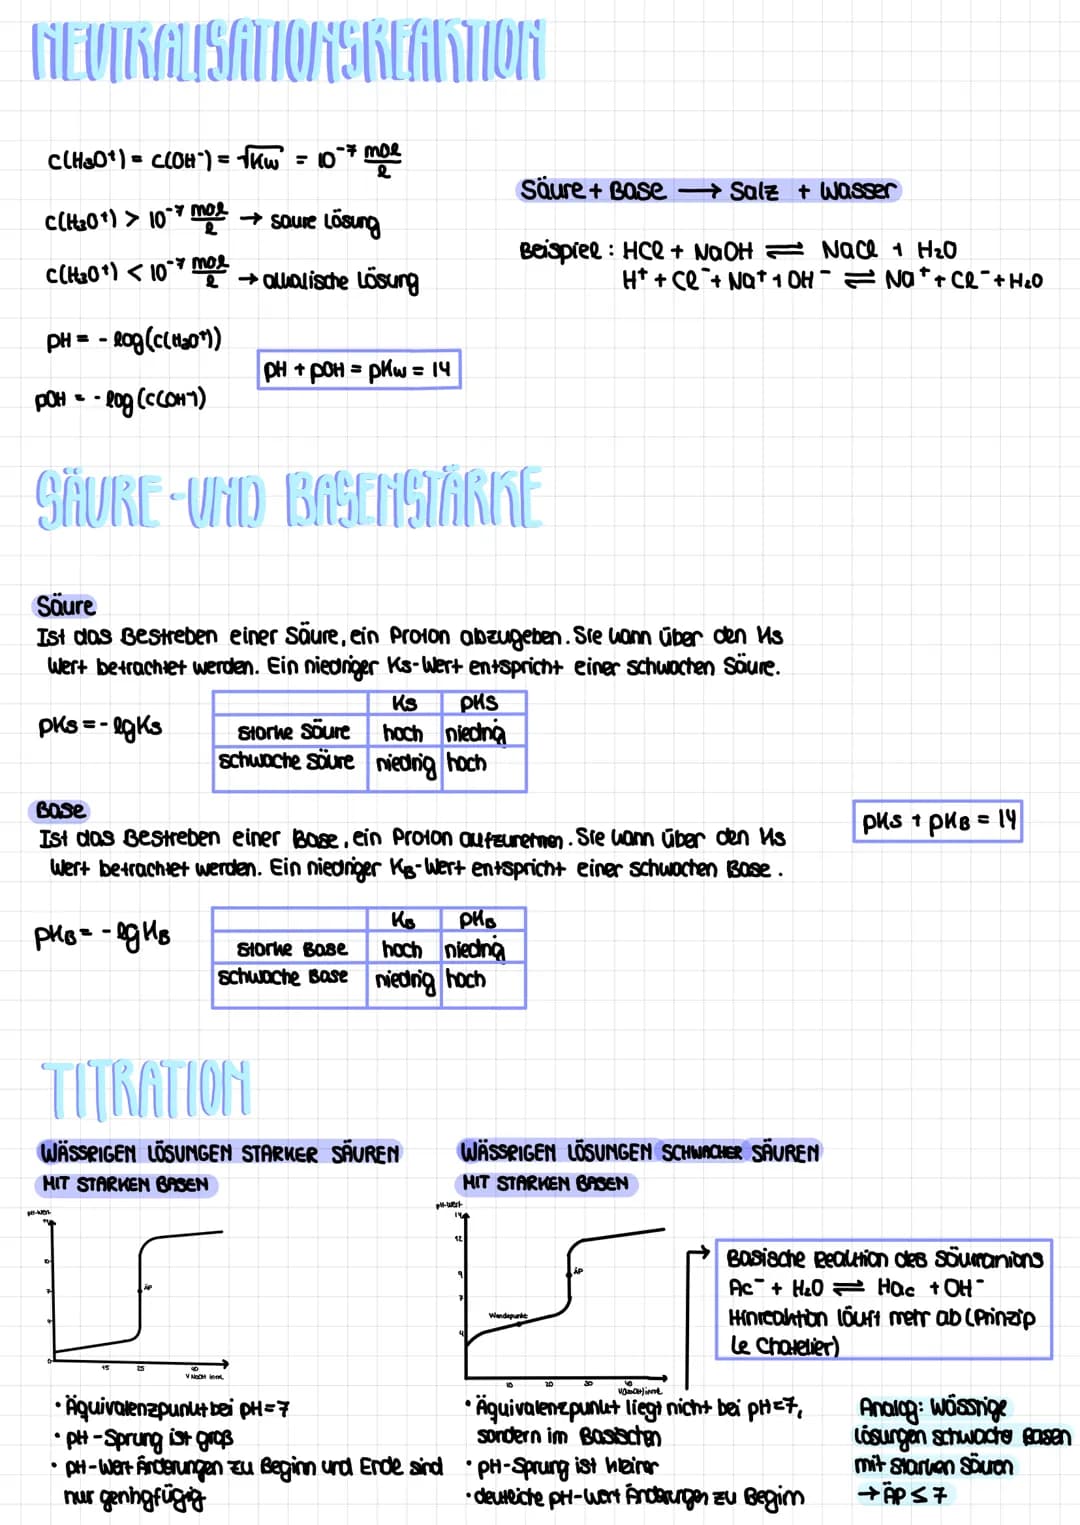 NEUTRALISATIONSREAKTION
c(H₃O⁺) = c(OH⁻) = √Kw = 10⁻⁷ mol/l
c(H₃O⁺) > 10⁻⁷ mol/l → saure Lösung
c(H₃O⁺) < 10⁻⁷ mol/l → alkalische Lösung
pH = - log(c(H₃O⁺))
pH + pOH = pKw = 14
pOH = - log(c(OH⁻))
Säure + Base → Salz + Wasser
Beispiel: HCl + NaOH ⇌ NaCl + H₂O
H⁺ + Cl⁻ + Na⁺ + OH⁻ ⇌ Na⁺ + Cl⁻ + H₂O
SÄURE-UND BASENSTÄRKE
Säure
Ist das Bestreben einer Säure, ein Proton abzugeben. Sie kann über den Ks
Wert betrachtet werden. Ein niedriger Ks-Wert entspricht einer schwachen Säure.
pKs = - lgKs
Ks pKs
starke Säure hoch niedrig
schwache Säure niedrig hoch
Base
Ist das Bestreben einer Base, ein Proton aufzunehmen. Sie kann über den Ks
Wert betrachtet werden. Ein niedriger KB-Wert entspricht einer schwachen Base.
pKs + pKB = 14
pKB = - lgKB
KB pKB
starke Base hoch niedrig
schwache Base niedrig hoch
TITRATION
WÄSSRIGEN LÖSUNGEN STARKER SÄUREN
MIT STARKEN BASEN
pH-Wert
ÄP
15 25 40
V NaOH in mL
• Äquivalenzpunkt bei pH=7
• pH-Sprung ist groß
• pH-Wert Änderungen zu Beginn und Ende sind
nur geringfügig
WÄSSRIGEN LÖSUNGEN SCHWACHER SÄUREN
MIT STARKEN BASEN
pH-Wert
14
12
9
7
4
ÄP
Wendepunkt
10 20 30 40
V(NaOH) in mL
• Äquivalenzpunkt liegt nicht bei pH=7,
sondern im Basischen
• pH-Sprung ist kleiner
• deutliche pH-Wert Änderungen zu Beginn
Basische Reaktion des Säureanions
Ac⁻ + H₂O ⇌ HAc + OH⁻
Hinreaktion läuft mehr ab (Prinzip
Le Chatelier)
Analog: Wässrige
Lösungen schwache Basen
mit starken Säuren
→ ÄP ≤ 7